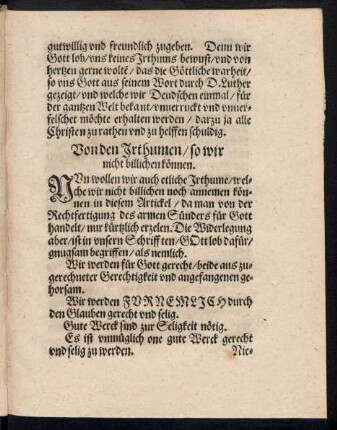 gutwillig vnd freundlich zugeben. Denn wir
Gott lob/vns keines Irthums bewust/vnd von
hertzen gerne woltē/das die Göttliche warheit/
so vns Gott aus seinem Wort durch D. Luther
gezeigt/vnd welche wir Deudschen einmal/für
der gantzen Welt bekant/vnuerruckt vnd vnuer-
felschet möchte erhalten werden/darzu ja alle
Christen zu rathen vnd zu helffen schuldig.
Von den Irthumen/so wir
nicht billichen können.
NVn wollen wir auch etliche Irthume/wel-
che wir nicht billichen noch annemen kön-
nen in diesem Artickel/da man von der
Rechtfertigung des armen Sünders für Gott
handelt/nur kürtzlich erzelen. Die Widerlegung
aber/ist in vnsern Schrifften/GOtt lob dafür/
gnugsam begriffen/als nemlich.
Wir werden für Gott gerecht/beide aus zu-
gerechneter Gerechtigkeit vnd angefangenen ge-
horsam.
Wir werden FVRNEMLICH durch
den Glauben gerecht vnd selig.
Gute Werck sind zur Seligkeit nötig.
Es ist vnmüglich one gute Werck gerecht
vnd selig zu werden. Nie-